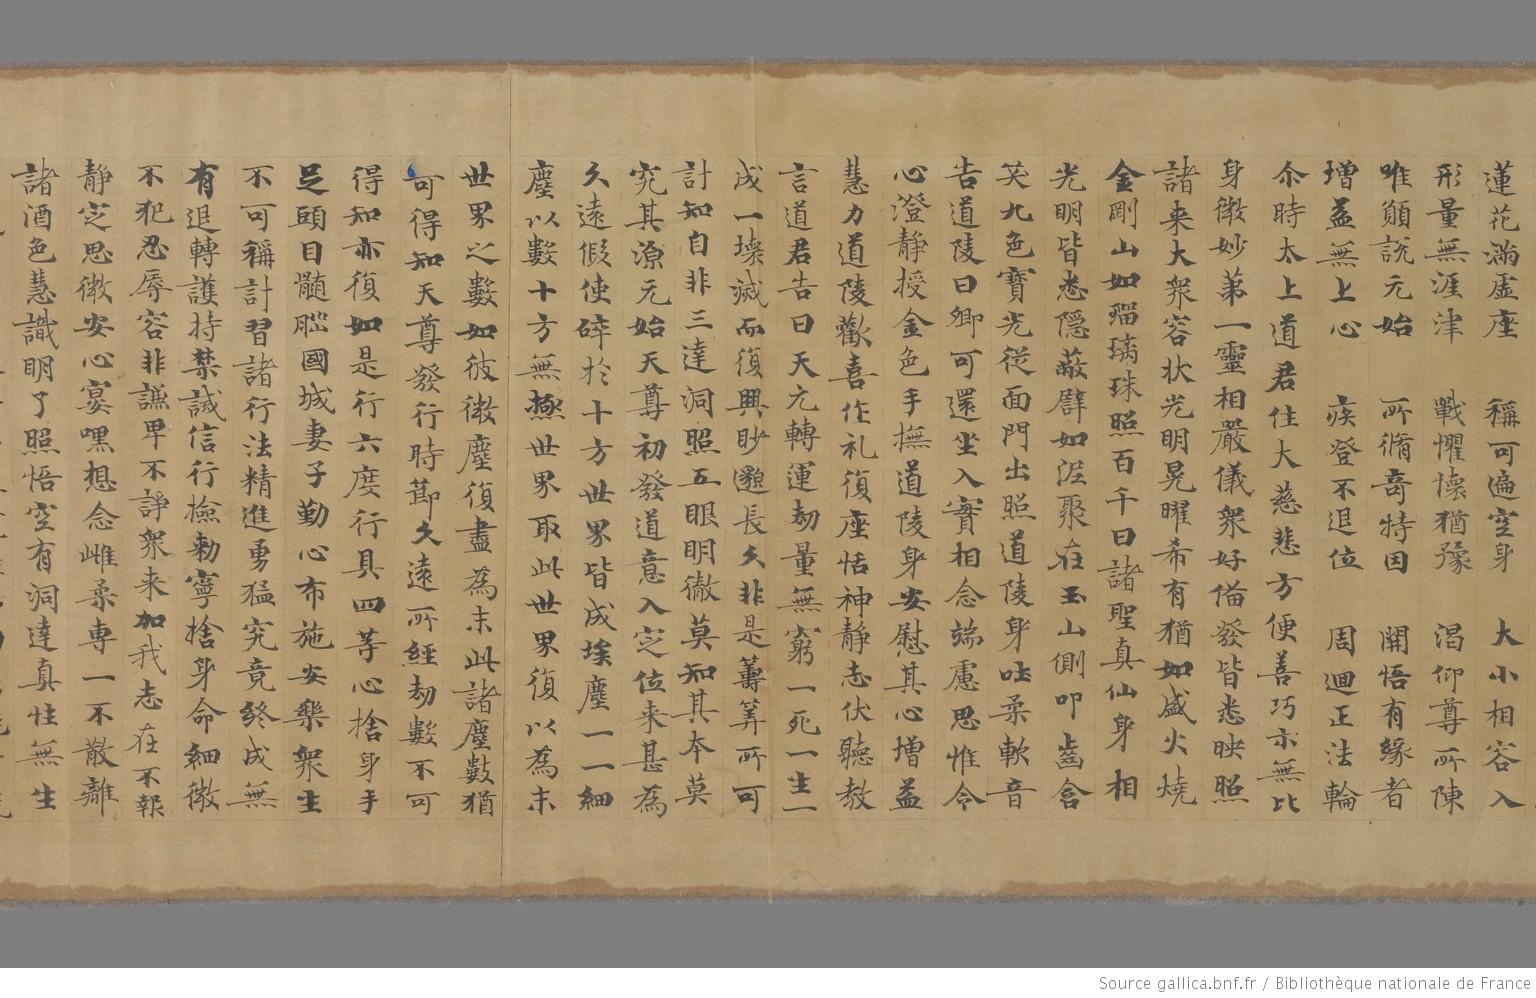 蓮花滿虛座 稱可遍空身 大小相容入
形量無涯津 戰懼懷猶豫 渴仰尊所陳
唯願說元始 所脩奇特因 開悟有緣者
增益無上心 疾登不退位 周迴正法輪
尒時太上道君住大慈悲方便善巧示無比
身微妙第一靈相嚴儀衆好俻發皆悉映照
諸来大衆容状光明晃曜希有猶如盛火燒
金剛山如瑠璃珠照百千日諸聖真仙身相
光明皆悉隱蔽譬如涇聚在玉山側叩齒含
笑九色寶光從面門出照道陵身吐柔軟音
告道陵曰卿可還坐入實相念端慮思惟令
心澄靜授金色手撫道陵身安慰其心增益
慧力道陵歡喜作礼復座恬神靜志伏聽教
言道君告曰天元轉運劫量無窮一死一生一
成一壞滅而復興眇邈長久非是籌筭所可
計知自非三達洞照五眼明徹莫知其本莫
究其源元始天尊初發道意入㝎位来甚為
久遠假使碎於十方世界皆成埃塵一一細
塵以數十方無極世界取此世界復以為末
世界之數如彼微塵復盡為末此諸塵數猶
可得知天尊發行時節久遠所經劫數不可
得知亦復如是行六度行具四等心捨身手
足頭目髓𦛁國城妻子勤心布施安樂衆生
不可稱計習諸行法精進勇猛究竟終成無
有退轉護持禁誡信行撿勑寧捨身命細微
不犯忍辱容非謙卑不諍衆来加我志在不報
靜㝎思微安心宴嘿想念雌柔專一不散離
諸酒色慧識明了照悟空有洞達真性無生